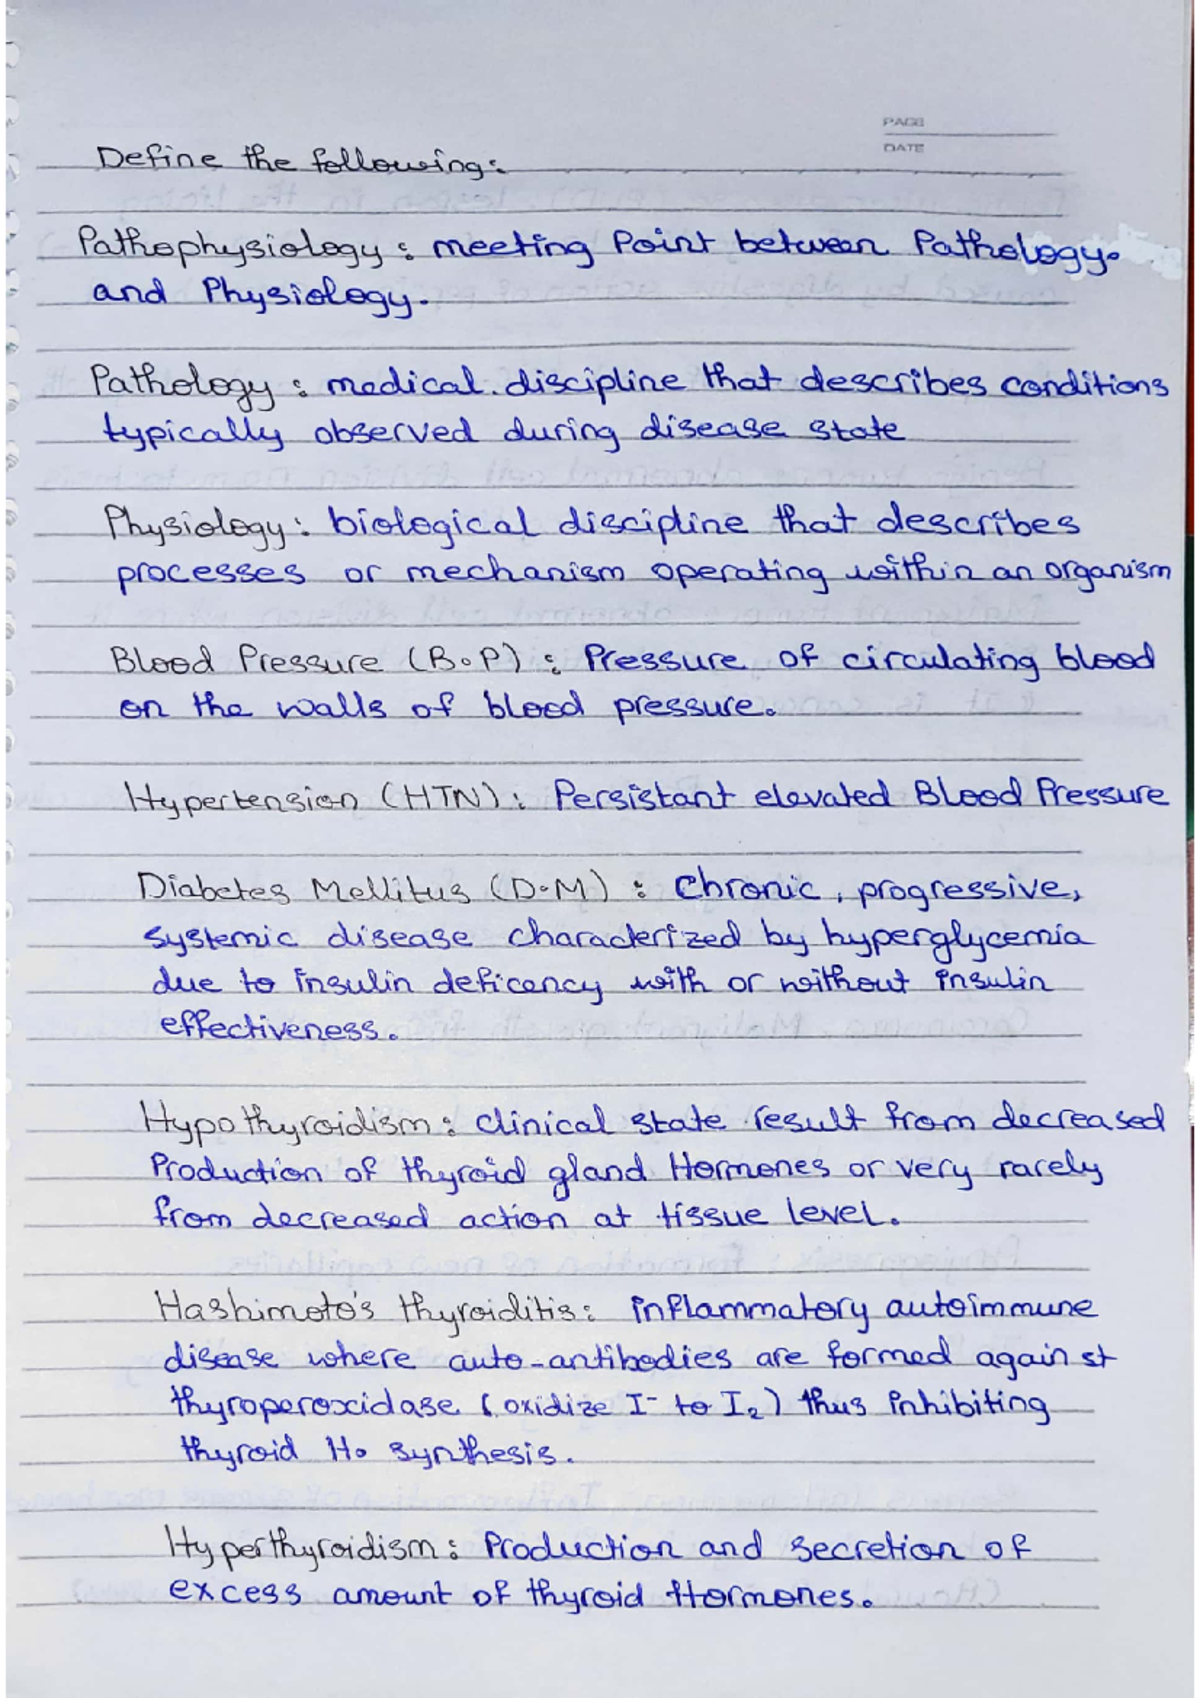 PAGE
DATE
Define the following:
Pathophysiology : meeting Point between Pathology.
and Physiology.
Pathology : medical discipline that describes conditions
typically observed during disease state
Physiology : biological discipline that describes
processes or mechanism operating within an organism
Blood Pressure (B.P) : Pressure of circulating blood
on the walls of blood pressure.
Hypertension (HTN) : Persistant elevated Blood Pressure
Diabetes Mellitus (D.M) : Chronic, progressive,
systemic disease characterized by hyperglycemia
due to insulin deficency with or without insulin
effectiveness.
Hypothyroidism : clinical state result from decreased
Production of thyroid gland Hormones or very rarely
from decreased action at tissue level.
Hashimoto's thyroiditis : inflammatory autoimmune
disease where auto-antibodies are formed against
thyroperoxidase (oxidize I⁻ to I₂) thus inhibiting
thyroid Ho synthesis.
Hyperthyroidism : Production and secretion of
excess amount of thyroid Hormones.